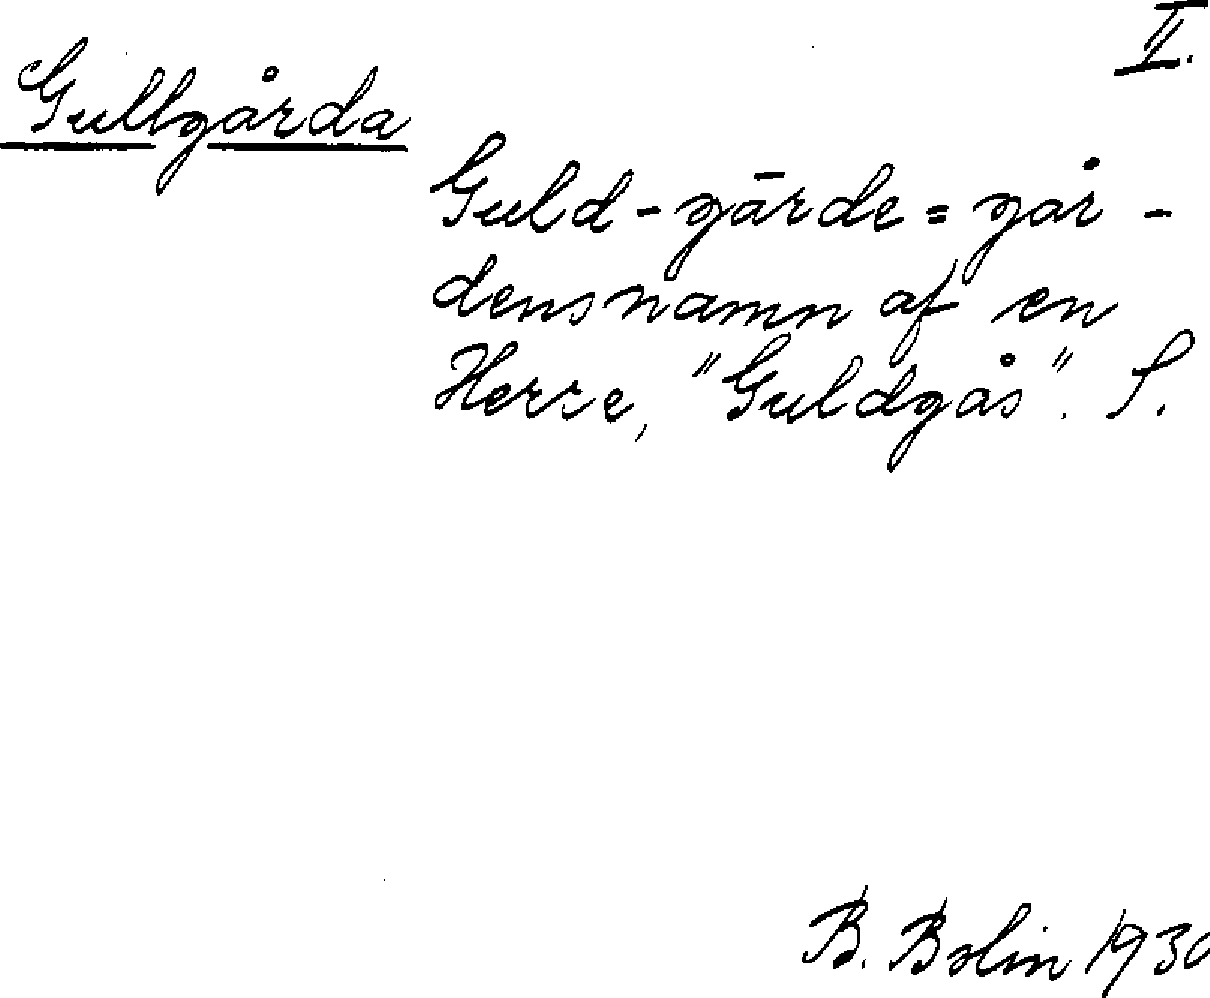 II.
Gullgårda
Guld-gärde = går-
densnamn af en
Herre, "Guldgås". S.
B. Bolin 1930